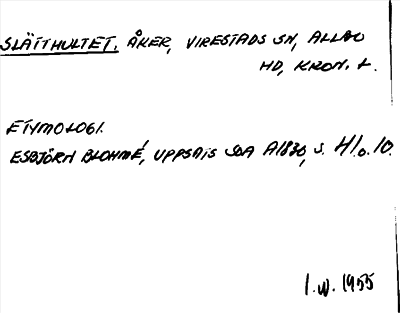 SLÄTTHULTET. ÅKER, VIRESTADS SN, ALLBO
HD, KRON. L.
ETYMOLOGI.
ESBJÖRN BLOHMÉ, UPPSATS SOA A1830, S. 41 o. 10.
I.W. 1955